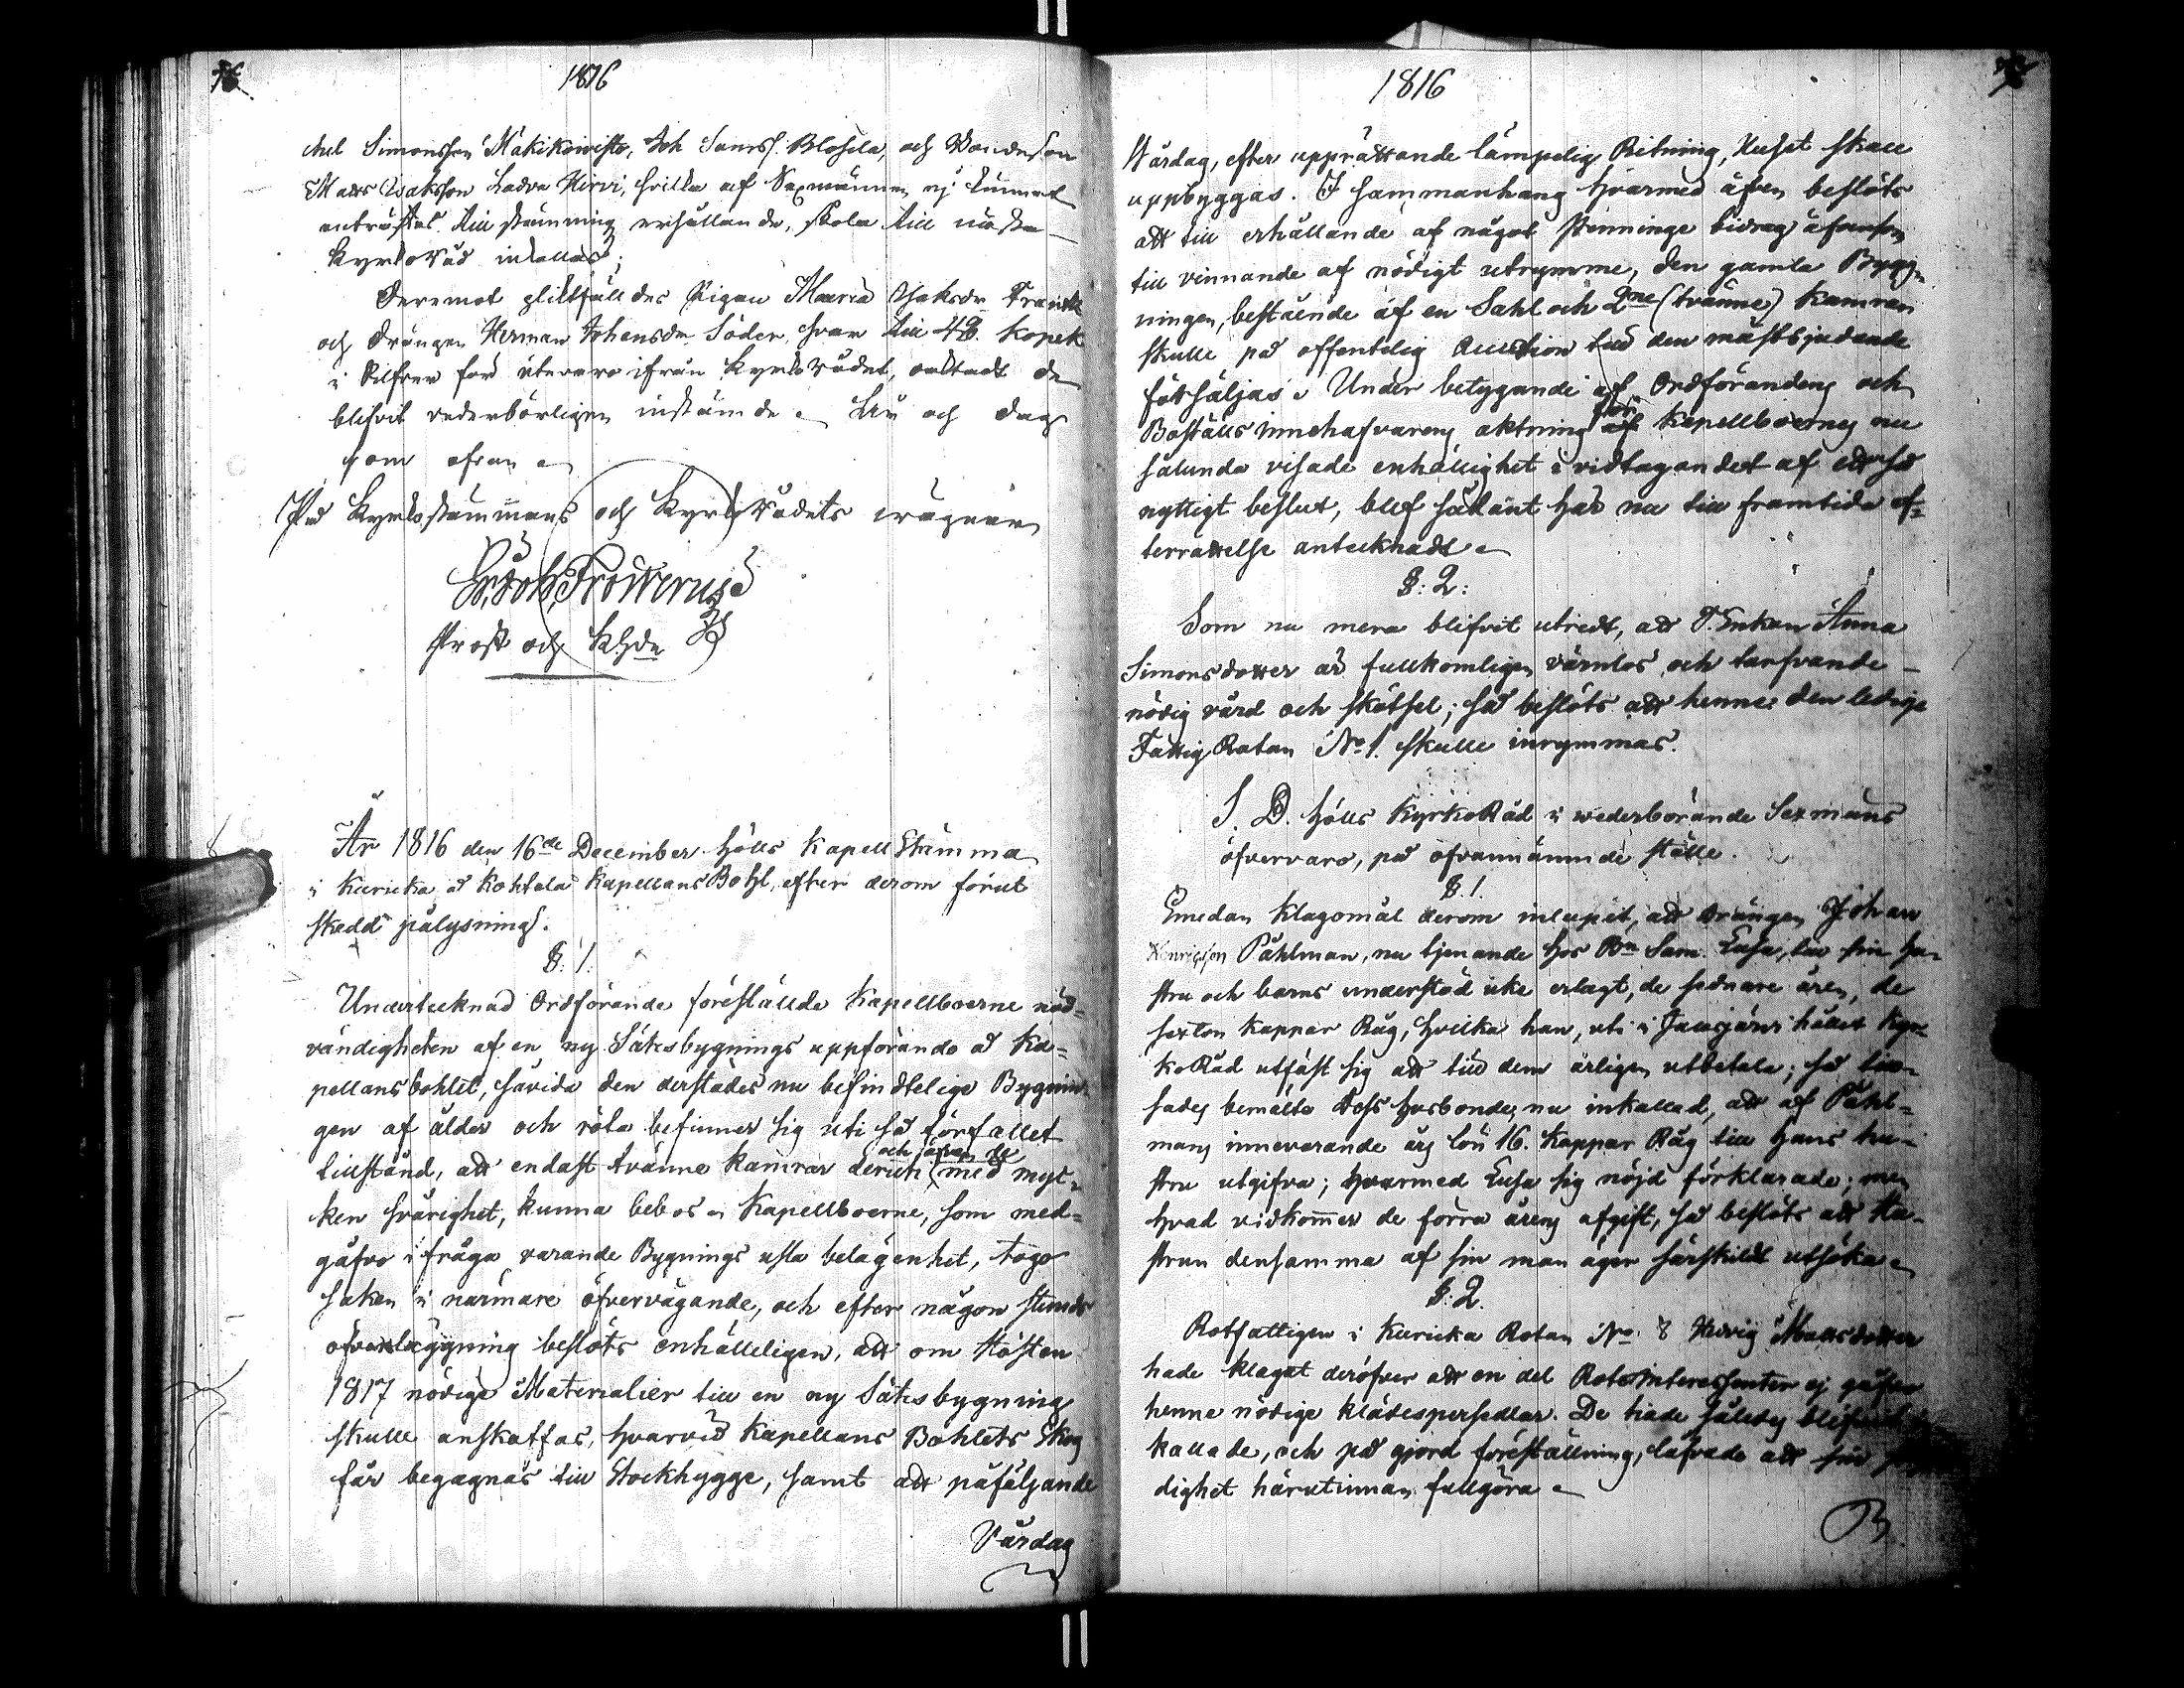 76
1816
chel Simonsson Mäkikoivisto, Joh Samss. Blosila, och Bondeson
Matts Isaksson Ladva Hirvi, hvilka af Sexmännen ej kunnat
anträffas till stämning erhållande, skola till nästa
Kyrkoråd inkallas;
Deremot pliktfälldes Pigan Maria Isaksdr
och Drängen Herman Johansdr Söder, hvar till 48 Kopek
i Silfver för utevaro ifrån Kyrkorådet, oaktadt de
blifvit vederbörligen instämde. År och dag
som ofvan
På Kyrkostämmans och KyrkoRådets wägnar
Frosterus
Prost och Khde
År 1816 den 16de December hölls Kapell Stämma
i Kuricka å Kohtala Kapellans Bohl, efter derom förut
skedd pålysning.
§: 1.
Undertecknad Ordförande föreställde Kapellboerne nöd-
vändigheten af en ny Sätesbygnings uppförande å Ka-
pellansbohlet, såvida den derstädes nu befindtelige Bygnin-
gen af ålder och röta befinner sig uti så förfallet
tillstånd, att endast tvänne kamrar deruti och äfven de med myc-
ken svårighet, kunna bebos. Kapellboerne, som med-
gåfvo i fråga varande Bygnings usla belägenhet, togo
saken i närmare öfvervägande, och efter någon stunds
öfverläggning beslöts enhälleligen, att om Hösten
1817 nödige Materialier till en ny Sätesbygning
skulle anskaffas, hvarvid Kapellans Bohlets Skog
får begagnas till Stockhygge, samt att påföljande
Vårdag
1816
Vårdag, efter upprättande lämpelig Ritning, Huset skall
uppbyggas. I sammanhang hvarmed äfven beslöts
att till erhållande af något Penninge bidrag äfvensom
till vinnande af nödigt utrymme, den gamla Bygg-
ningen, bestående af en Sahl och 2ne (tvänne) Kamrar
skulle på offentelig Auction till den mästbjudande
försäljas. Under betygande af Ordförandens och
Boställs innehafvarens aktning för Kapellboernes nu
sålunda visade enhällighet i vidtagandet af ett så
nyttigt beslut, blef sådant här nu till framtida ef-
terrättelse antecknadt
§: 2:
Som nu mera blifvit utredt, att T. Enkan Anna
Simonsdotter är fullkomligen värnlös och tarfvande
nödig vård och skötsel; så beslöts att henne den ledige
Fattig Rotan No 1. skulle inrymmas.
S. D. hölls KyrkoRåd i wederbörande Sexmäns
öfvervaro, på ofvannämnde ställe.
§. 1.
Emedan Klagomål derom inlupit, att Drängen Johan
Henricsson Påhlman, nu tjenande hos Bn Sam. Luha, till sin hu-
stru och barns understöd icke erlagt, de sednare åren, de
sexton Kappar Råg, hvilka han, uti i Jalasjärvi hållet Kyr-
koRåd utfäst sig att till dem årligen utbetala; så till-
sades bemälta dess husbonde, nu inkallad, att af Påhl-
mans innevarande års lön 16. Kappar Råg till hans hu-
stru utgifva; hvarmed Luha sig nöjd förklarade; men
hvad vidkommer de förra årens afgift, så beslöts att Hu-
strun densamma af sin man äger särskildt utsöka
§: 2.
Rotfattigen i Kuricka Rotan No 8 Hedvig Mattsdotter
hade klagat deröfver att en del RoteInteressenter ej gåfvo
henne nödige klädespersedlar. De hade således blifvit
kallade, och på gjord föreställning, lofvade att sin
dighet härutinnan fullgöra